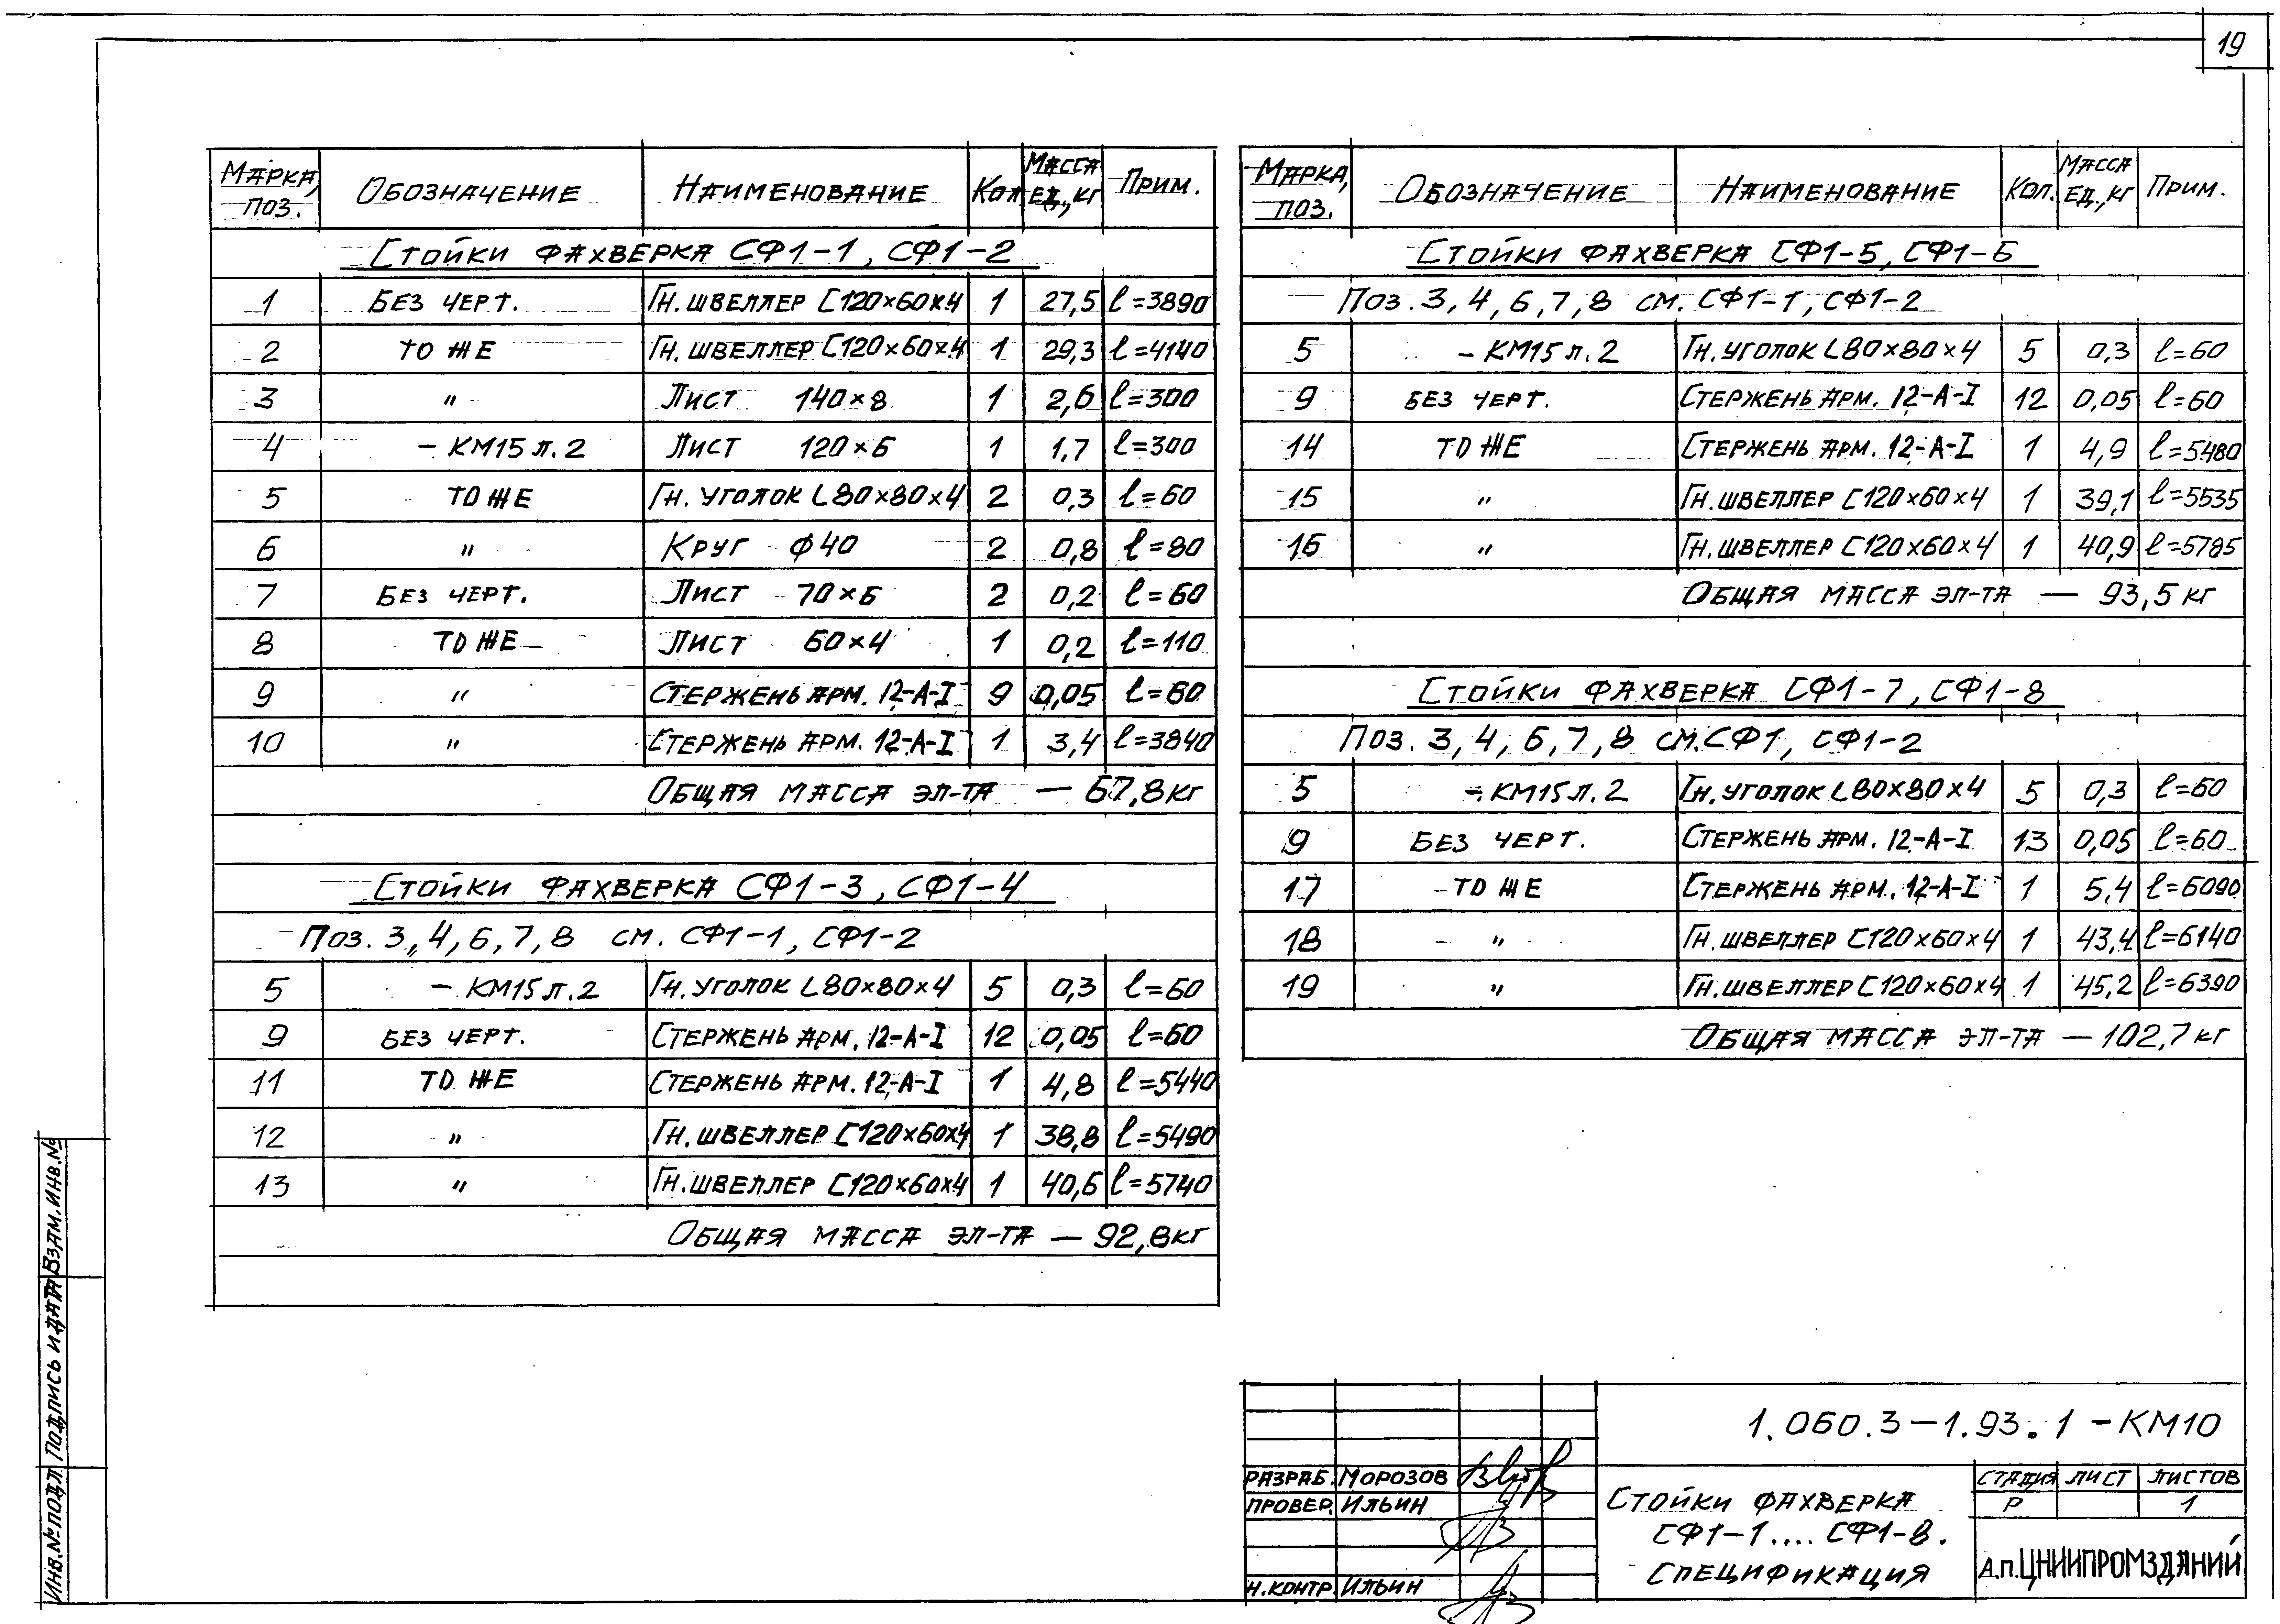 19
Марка, поз. Обозначение Наименование Кол. Масса ед., кг Прим.
Стойки фахверка СФ1-1, СФ1-2
1 Без черт. Гн. швеллер [120×60×4 1 27,5 ℓ=3890
2 То же Гн. швеллер [120×60×4 1 29,3 ℓ=4140
3 " Лист 140×8 1 2,6 ℓ=300
4 - КМ15 л. 2 Лист 120×6 1 1,7 ℓ=300
5 То же Гн. уголок L80×80×4 2 0,3 ℓ=60
6 " Круг ϕ40 2 0,8 ℓ=80
7 Без черт. Лист 70×6 2 0,2 ℓ=60
8 То же Лист 60×4 1 0,2 ℓ=110
9 " Стержень арм. 12-А-I 9 0,05 ℓ=60
10 " Стержень арм. 12-А-I 1 3,4 ℓ=3840
Общая масса эл-та — 67,8 кг
Стойки фахверка СФ1-3, СФ1-4
Поз. 3, 4, 6, 7, 8 см. СФ1-1, СФ1-2
5 - КМ15 л. 2 Гн. уголок L80×80×4 5 0,3 ℓ=60
9 Без черт. Стержень арм. 12-А-I 12 0,05 ℓ=60
11 То же Стержень арм. 12-А-I 1 4,8 ℓ=5440
12 " Гн. швеллер [120×60×4 1 38,8 ℓ=5490
13 " Гн. швеллер [120×60×4 1 40,6 ℓ=5740
Общая масса эл-та — 92,8 кг
Марка, поз. Обозначение Наименование Кол. Масса ед., кг Прим.
Стойки фахверка СФ1-5, СФ1-6
Поз. 3, 4, 6, 7, 8 см. СФ1-1, СФ1-2
5 - КМ15 л. 2 Гн. уголок L80×80×4 5 0,3 ℓ=60
9 Без черт. Стержень арм. 12-А-I 12 0,05 ℓ=60
14 То же Стержень арм. 12-А-I 1 4,9 ℓ=5480
15 " Гн. швеллер [120×60×4 1 39,1 ℓ=5535
16 " Гн. швеллер [120×60×4 1 40,9 ℓ=5785
Общая масса эл-та — 93,5 кг
Стойки фахверка СФ1-7, СФ1-8
Поз. 3, 4, 6, 7, 8 см. СФ1, СФ1-2
5 - КМ15 л. 2 Гн. уголок L80×80×4 5 0,3 ℓ=60
9 Без черт. Стержень арм. 12-А-I 13 0,05 ℓ=60
17 То же Стержень арм. 12-А-I 1 5,4 ℓ=6090
18 " Гн. швеллер [120×60×4 1 43,4 ℓ=6140
19 " Гн. швеллер [120×60×4 1 45,2 ℓ=6390
Общая масса эл-та — 102,7 кг
Инв. № подл. Подпись и дата Взам. инв. №
1.060.3-1.93.1-КМ10
Разраб. Морозов
Провер. Ильин
Н. контр. Ильин
Стойки фахверка
СФ1-1.... СФ1-8.
Спецификация
Стадия Лист Листов
Р 1
А.п. ЦНИИПРОМЗДАНИЙ